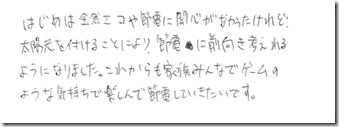 はじめは全然エコや節電に関心がなかったけれど、
太陽光を付けることにより、節電に前向き考えれる
ようになりました。これからも家族みんなでゲームの
ような気持ちで楽しんで節電していきたいです。